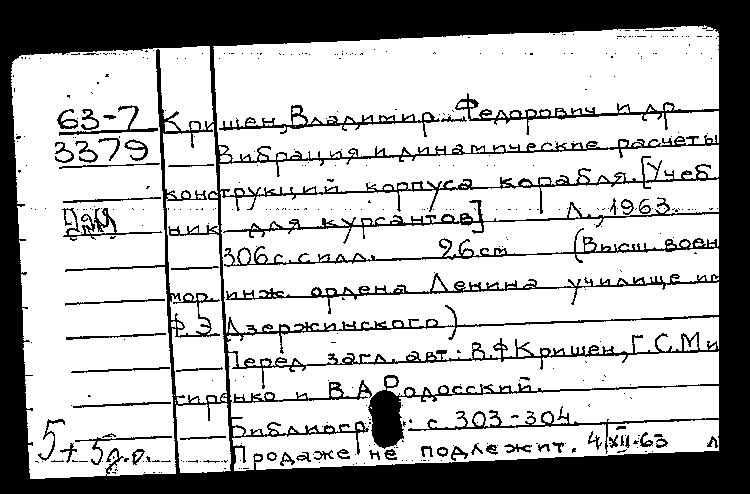 63-7 Кришен, Владимир Федорович и др
3379 Вибрация и динамические расчеты
конструкций корпуса корабля. [Учеб
ник для курсантов]. Л., 1963.
306 с. с илл. 26 см (Высш. воен
мор. инж. ордена Ленина училище им
Ф.Э Дзержинского)
Перед загл. авт.: В.Ф Кришен, Г.С. Ми
гиренко и В.А Родосский.
Библиогр : с 303-304.
5 + 5 д.о. Продаже не подлежит. 4/XII-63